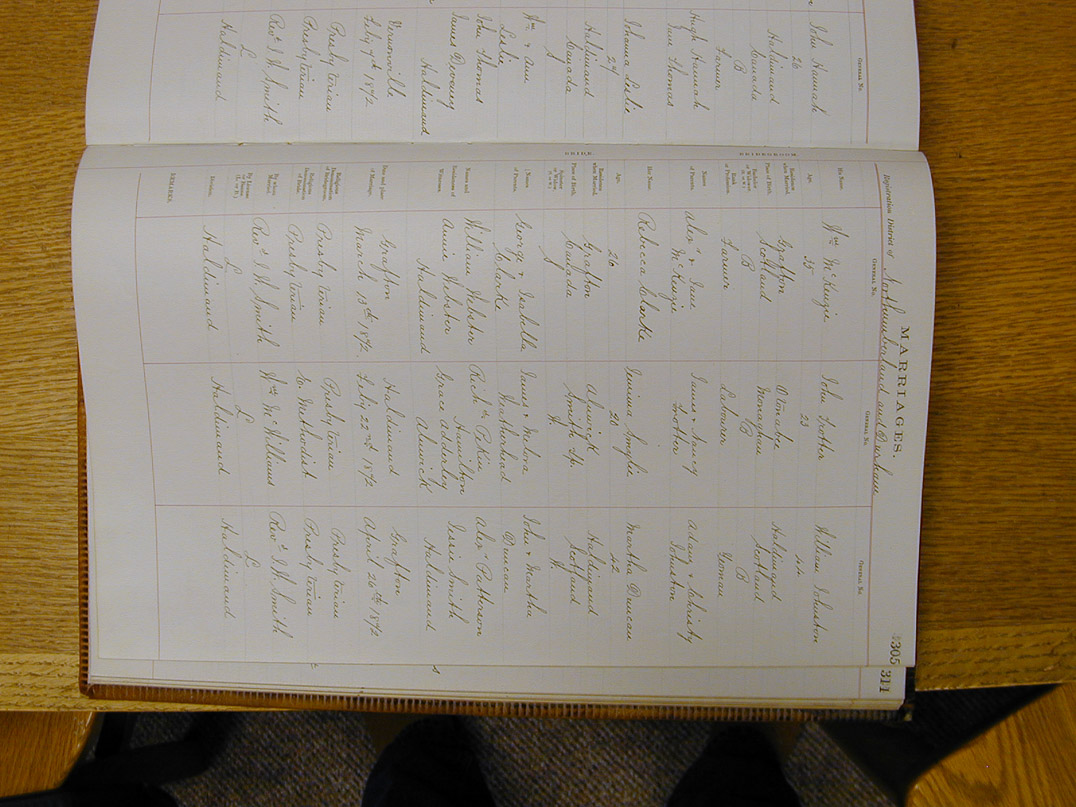 GENERAL No.
John Hannah
26
Haldimand
Canada
B
Farmer
Hugh Hannah
Jane Thomas
Leslie
24
Haldimand
Canada
S
Wm & Ann
Leslie
John Thomas
James
Haldimand
Vernonville
1872
Presbyterian
Presbyterian
Revd J. W. Smith
L
Haldimand
MARRIAGES.
305
311
Registration District of Northumberland and Durham
GENERAL No.
GENERAL No.
GENERAL No.
BRIDEGROOM.
His Name.
Age.
Residence when Married.
Place of Birth.
Bachelor or Widower (B. or W.)
Rank or Profession.
Names of Parents.
BRIDE.
Her Name.
Age.
Residence when Married.
Place of Birth.
Spinster or Widow (S. or W.)
Names of Parents.
Names and Residences of Witnesses
Date and place of Marriage.
Religious Denomination of Bridegroom.
Religious Denomination of Bride.
By whom Married.
By License or Banns (L. or B.)
Division.
REMARKS.
Wm McKenzie
35
Grafton
Scotland
B
Farmer
Alex & Jane
McKenzie
Rebecca Clarke
26
Grafton
Canada
S
George & Isabella
Clarke
William Webster
Annie Webster
Haldimand
Grafton
March 13th 1872
Presbyterian
Presbyterian
Revd J. W. Smith
L
Haldimand
John Trotter
23
Otonabee
Monaghan
Labourer
James & Nancy
Trotter
20
Alnwick
Smith Tp.
James &
Richd
Hamilton
Grace Adderley
Alnwick
Haldimand
Feby 22nd 1872
Presbyterian
Methodist
Wm McWilliams
L
Haldimand
William Johnston
44
Haldimand
Scotland
B
Yeoman
Adam & Christy
Johnston
Martha Duncan
42
Haldimand
Scotland
John & Martha
Duncan
Alex Patterson
Jessie Smith
Haldimand
Grafton
April 26th 1872
Presbyterian
Presbyterian
Revd J. W. Smith
L
Haldimand